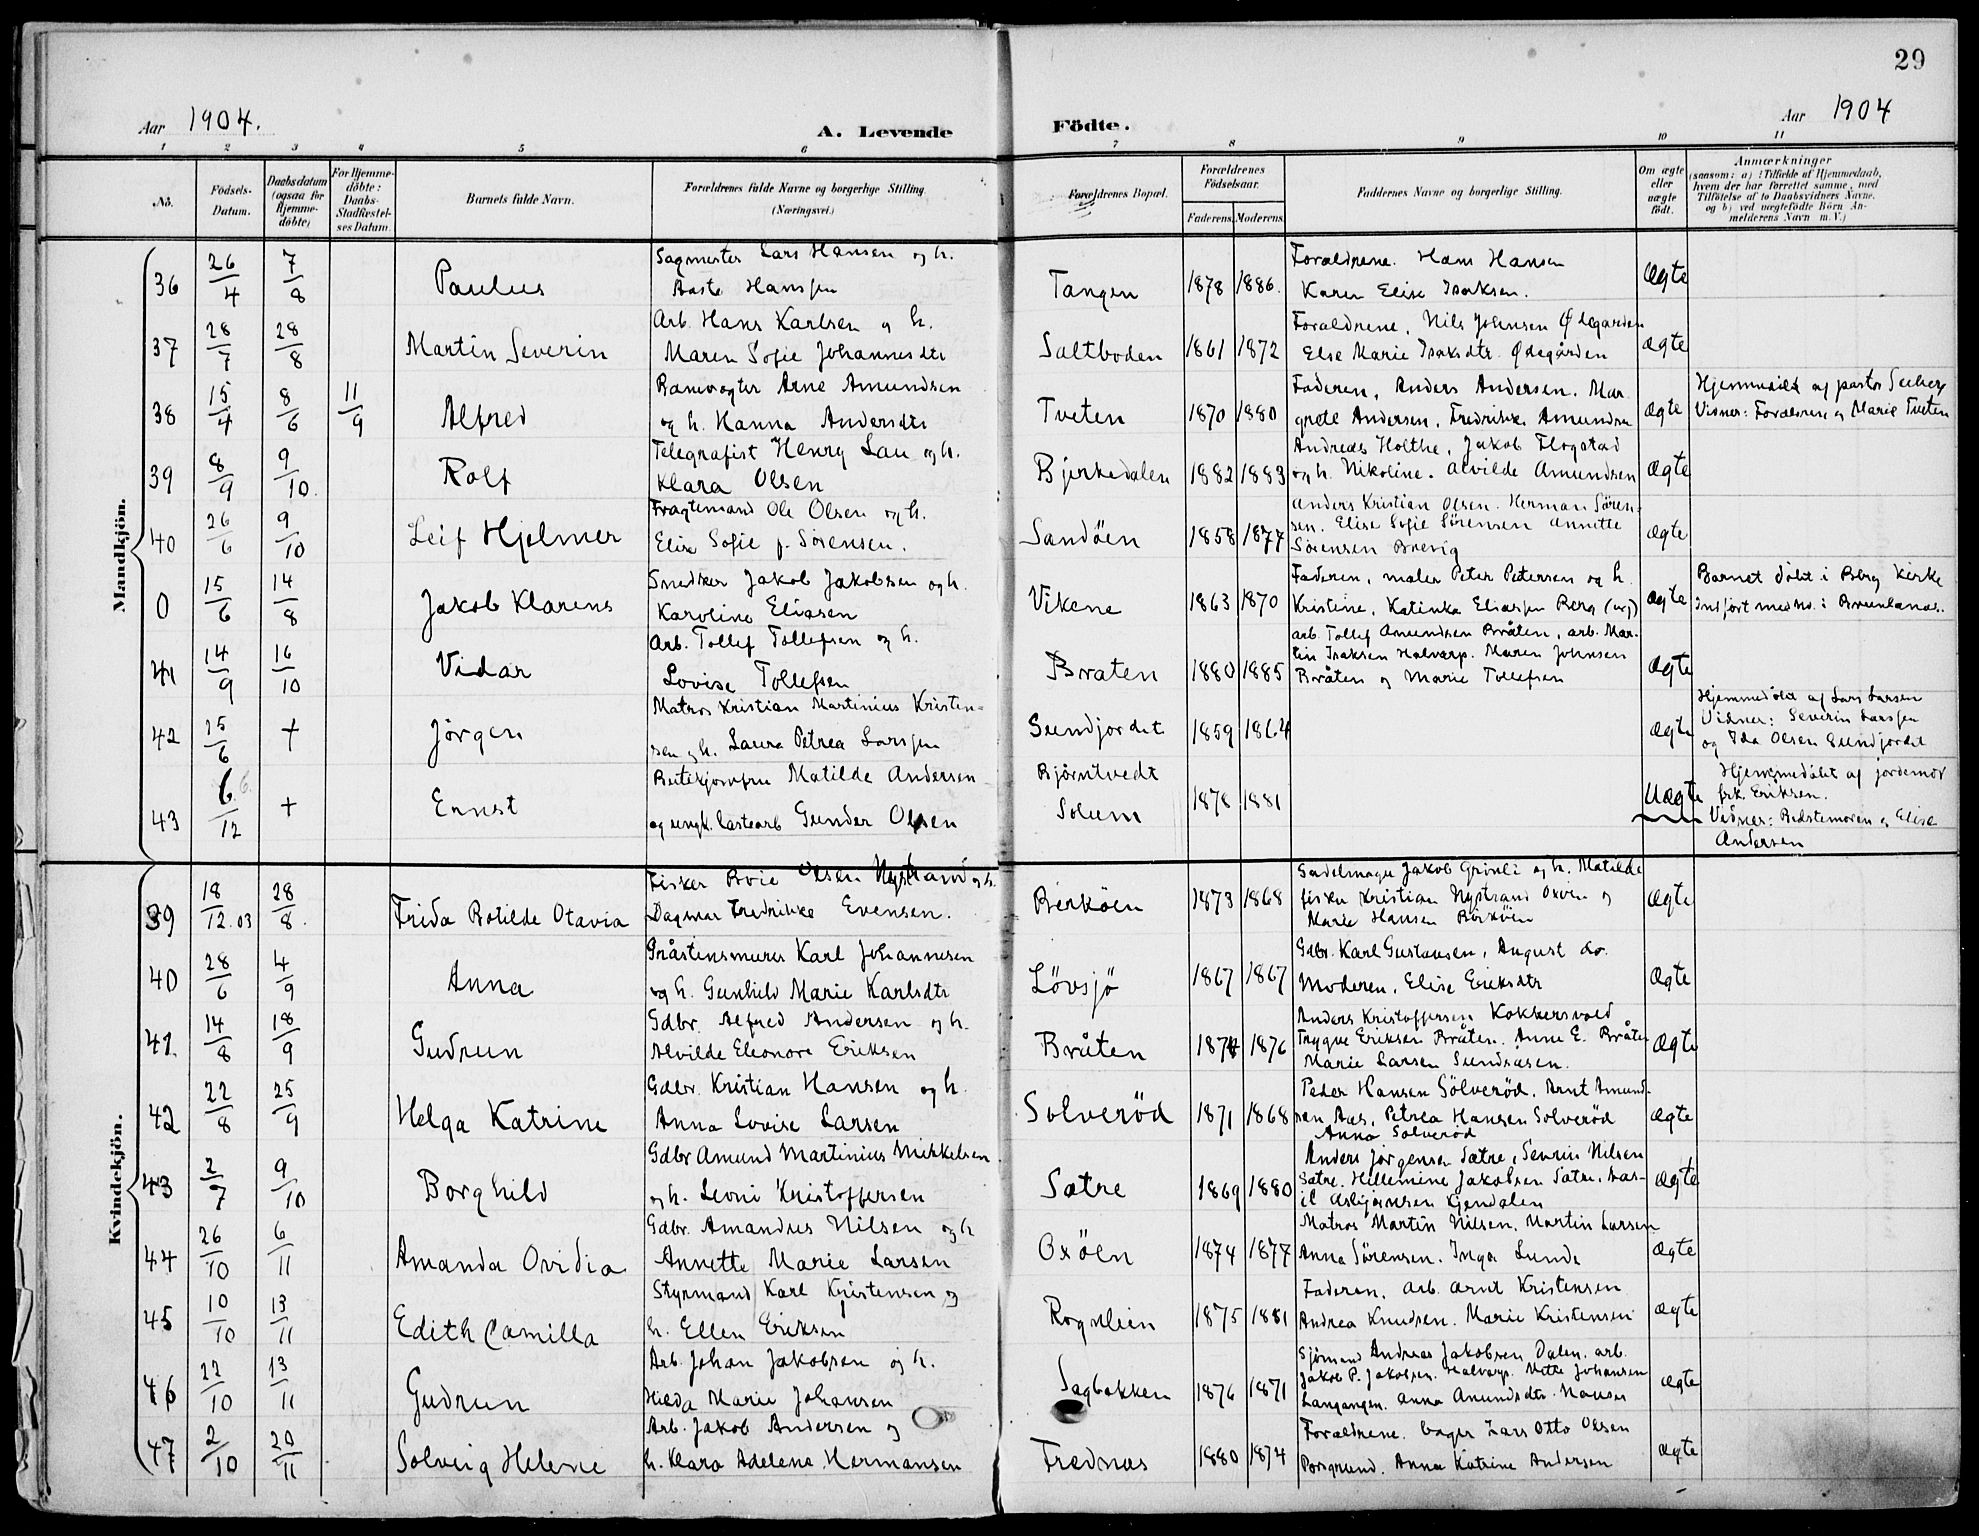 29
Aar 1904.
A. Levende Födte.
Aar 1904
1 2 3 4 5 6 7 8 9 10 11
No.
Födsels-Datum.
Daabsdatum (ogsaa for Hjemme-döbte)
For Hjemme-döbte: Daabs-Stadfæstel-ses Datum.
Barnets fulde Navn.
Forældrenes fulde Navne og borgerlige Stilling. (Næringsvei.)
Forældrenes Bopæl.
Forældrenes Födselsaar.
Faderens. Moderens.
Faddernes Navne og borgerlige Stilling.
Om ægte eller uægte födt.
Anmærkninger
(saasom: a) i Tilfælde af Hjemmedaab,
hvem der har forrettet samme, med
Tilföielse af to Daabsvidners Navne,
og b) ved uægtefödte Börn An-
melderens Navn m. V.)
Mandkjön.
36 26/4 7/8 Paulus
Sagmester Lars Hansen og h.
Aaste Hanssen
Tangen 1878 1886.
Forældrene. Hans Hansen
Karen Elise Isaksen.
Ægte
37 28/7 28/8 Martin Severin
Arb. Hans Karlsen og h.
Maren Sofie Johannesdtr
Saltboden 1861 1872
Forældrene, Nils Johnsen Ødegården
Else Marie Isaksdtr. Ødegården
Ægte
38 15/4 8/6 11/9 Alfred
Banevogter Arne Amundsen
og h. Hanna Andersdtr
Tveten 1870 1880
Faderen, Anders Andersen. Mar
grete Andersen, Fredrikke Amundsen
Ægte
Hjemmedöbt af pastor Seeberg
Vidner: Forældrene og Marie Tveten
39 8/9 9/10. Rolf
Telegrafist Henry Lau og h.
Klara Olsen
Bjerkedalen 1882 1883
Andreas Holthe, Jakob Flogstad
og h. Nikoline. Alvilde Amundsen
Ægte
40 26/6 9/10 Leif Hjelmer
Fragtemand Ole Olsen og h.
Elise Sofie f. Sörensen.
Sandöen 1858 1877
Anders Kristian Olsen. Herman Sören-
sen. Elise Sofie Sörensen Annette
Sörensen Brevig
Ægte
0 15/6 14/8 Jakob Klarens
Snedker Jakob Jakobsen og h.
Karoline Eliasen
Vikene 1863 1870
Faderen, maler Peter Petersen og h.
Kristine, Katinka Eliassen Berg
Ægte
Barnet döbt i Berg Kirke
Indfört med no. i Brunlanæs.
41 14/9 16/10 Vidar
Arb. Tollef Tollefsen og h.
Lovise Tollefsen
Bråten 1880 1885
arb. Tollef Amundsen Bråten, arb. Mar-
tin Isaksen Halvarp. Maren Johnsen
Bråten og Marie Tollefsen
Ægte
42 25/6 + Jörgen
Matros Kristian Martinius Kristen-
sen og h. Laura Petrea Larssen
Sundjordet 1859 1864
Ægte
Hjemmedöbt af Lars Larsen
Vidner: Severin Larssen
og Ida Olsen Sundjordet
43 6/12 + Ernst
Matilde Andersen
og ungk. lastearb Gunder Olsen
Björntvedt
Solum
1878 1881
Uægte
Hjemmedöbt af jordemor
frk. Eriksen.
Vidner: Bedstemoren og Elise
Andersen
Kvindekjön.
39 18/12.03 28/8. Frida Botilde Otavia
Fisker Boie Olsen Nystrand og h.
Dagmar Fredrikke Evensen.
Berköen 1873 1868
Sadelmager Jakob Grinli og h. Matilde
fisker Kristian Nystrand Oxöen og
Marie Hansen Börköen
Ægte
40 28/6 4/9 Anna
Gråstensmurer Karl Johannesen
og h. Gunhild Marie Karlsdtr
Lövsjö 1867 1867
Gdbr. Karl Gustavsen, August do.
Moderen, Elise Eriksdtr
Ægte
41. 14/8 18/9 Gudrun
Gdbr. Alfred Andersen og h.
Alvilde Eleonore Eriksen
Bråten 1874 1876
Anders Kristoffersen Kokkersvold
Trygve Eriksen Bråten. Anne E. Bråten
Marie Larsen Sundsåsen.
Ægte
42 22/8 25/9 Helga Katrine
Gdbr. Kristian Hansen og h.
Anna Lovise Larsen
Solveröd 1871 1868
Peder Hansen Sölveröd. Arnt Amund-
sen Aas, Petrea Hansen Solveröd
Anna Solveröd
Ægte
43 2/7 9/10 Borghild
Gdbr Amund Martinius Mikkelsen
og h. Leoni Kristoffersen
Sætre 1869 1880
Anders Jörgensen Sætre, Severin Nilsen
Sætre. Hellemine Jakobsen Sætre.
Asbjörnsen Kjendalen
Ægte
44 26/10 6/11 Amanda Ovidia
Gdbr. Amandus Nilsen og h
Annette Marie Larsen
Oxöen 1874 1877
Matros Martin Nilsen, Martin Larsen
Anna Sörensen. Inga Lunde
Ægte
45 10/10 13/11 Edith Camilla
Styrmand Karl Kristensen og
h. Ellen Eriksen
Rognlien 1875 1881
Faderen, arb. Arnt Kristensen
Andrea Knudsen. Marie Kristensen
Ægte
46 22/10 13/11 Gudrun
Arb. Johan Jakobsen og h.
Hilda Marie Johansen
Sagbakken 1876 1871
Sjömand Andreas Jakobsen Dalen, arb.
Jakob P. Jakobsen. Halvarp. Mette Johansen
Langangen. Anna Amundsdtr.
Ægte
47 2/10 20/11 Solveig Helene
Arb. Jakob Andersen og
h. Klara Adelene Hermansen
Frednæs 1880 1874
Forældrene. bager Lars Otto Olsen
Porsgrund. Anna Katrine Andersen
Ægte